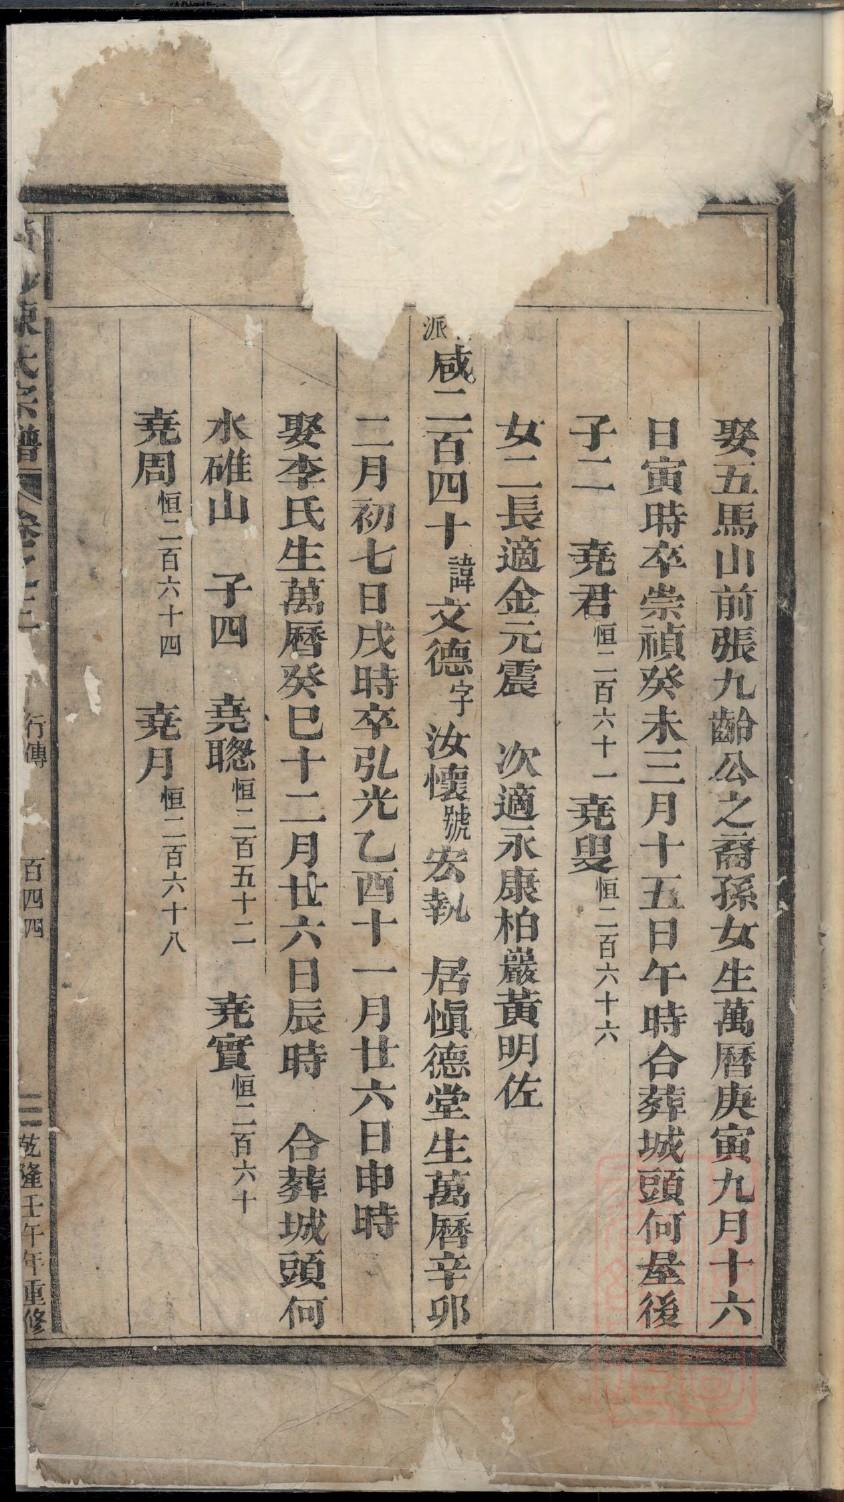 娶五馬山前張九齡公之裔孫女生萬曆庚寅九月十六
日寅時卒崇禎癸未三月十五日午時合葬城頭何屋後
子二　堯君恒二百六十一堯叟恒二百六十六
女二長適金元震　次適永康柏巖黃明佐
派咸二百四十諱文德字汝懷號宏執　居愼德堂生萬曆辛卯
二月初七日戌時卒弘光乙酉十一月廿六日申時
娶李氏生萬曆癸巳十二月廿六日辰時　合葬城頭何
水碓山　子四　堯聰恒二百五十二　堯實恒二百六十
堯周恒二百六十四　堯月恒二百六十八
陳氏宗譜　卷之三　行傳　百四四　乾隆壬午年重修